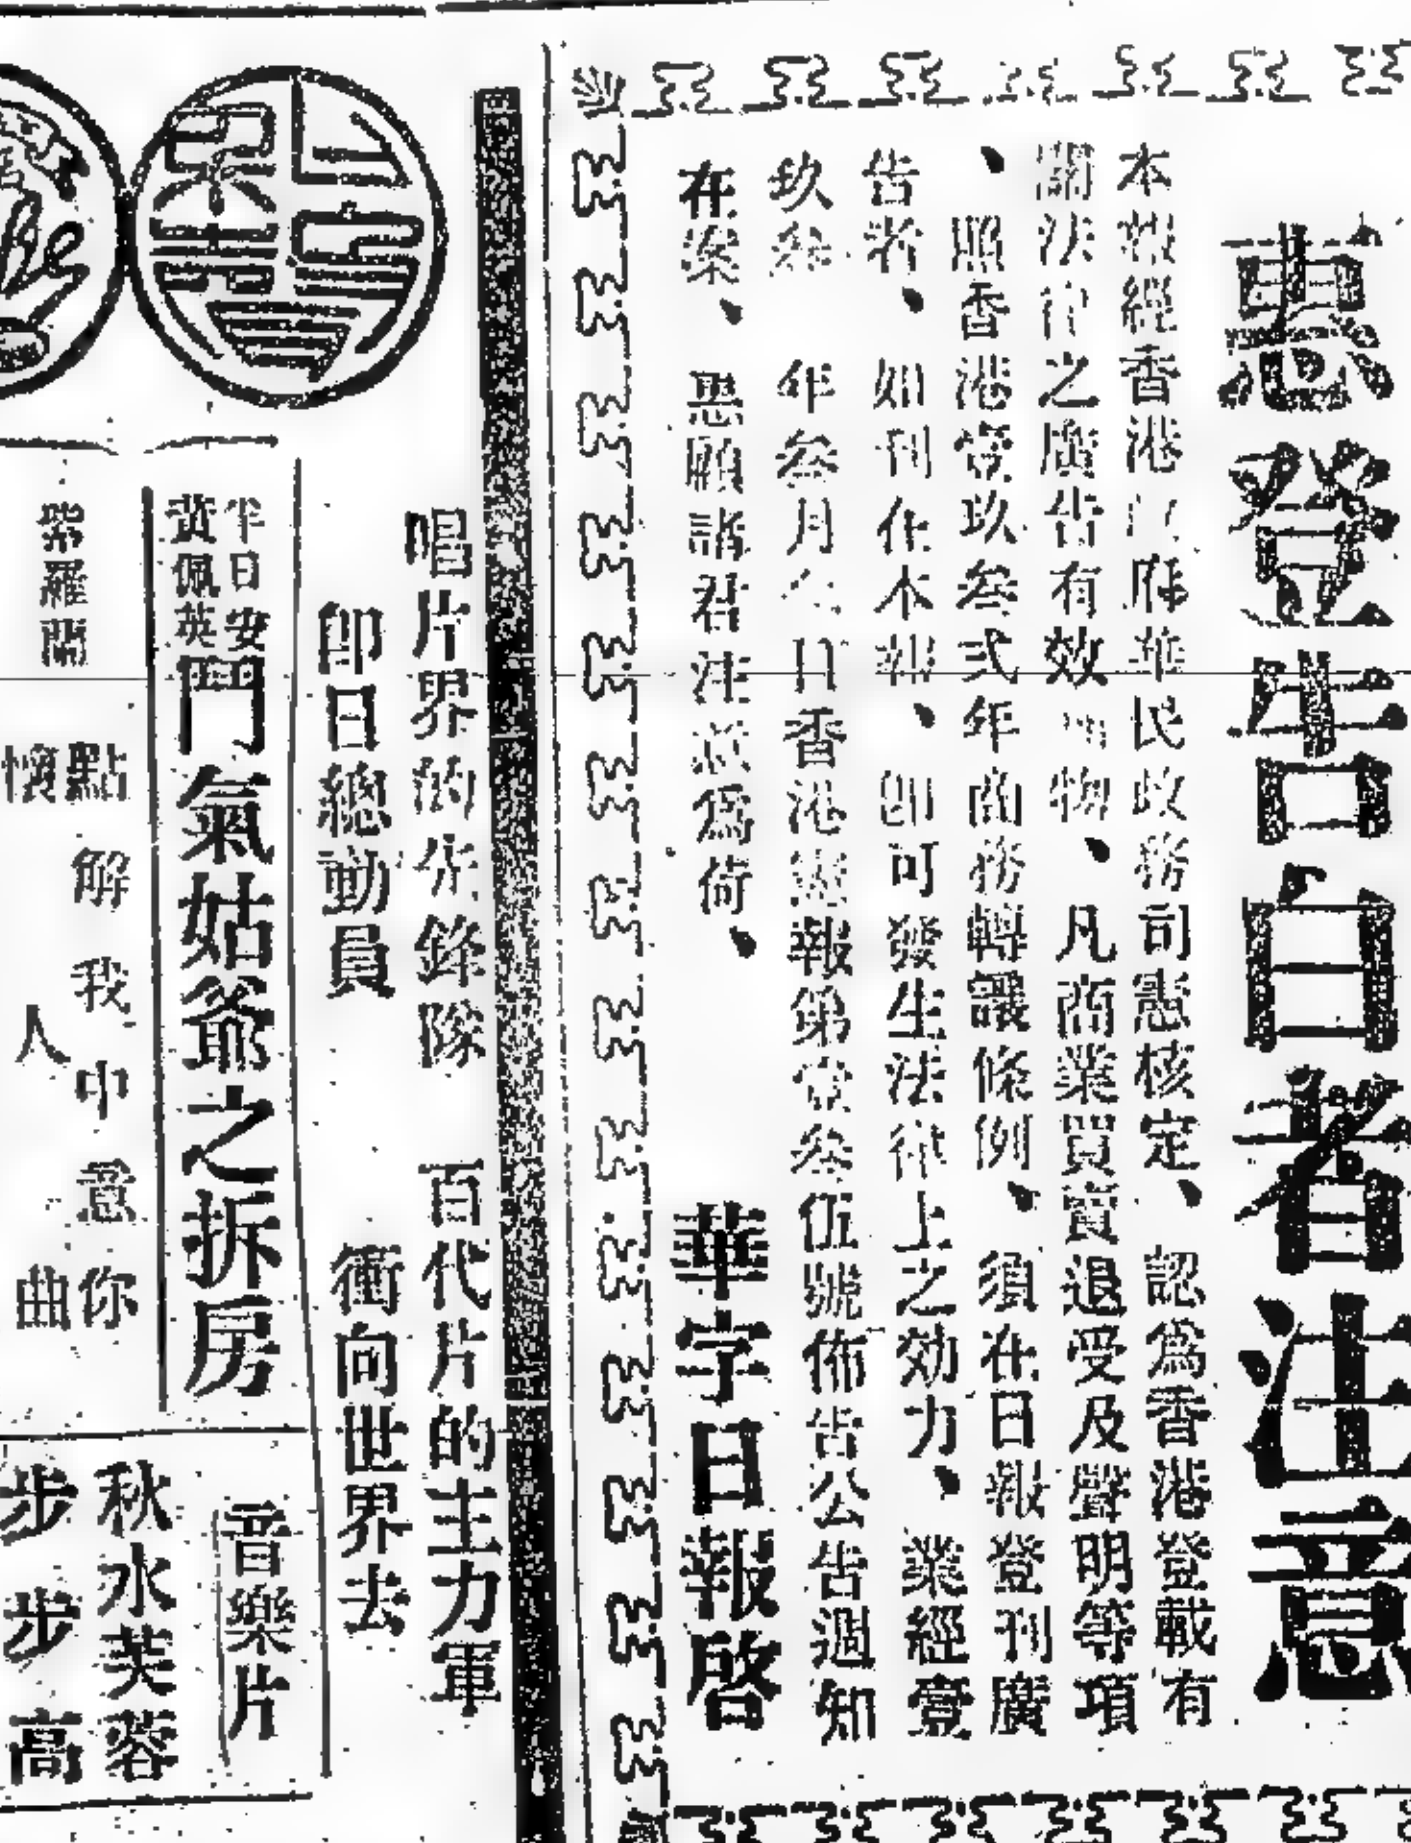 惠登告白者注意
本報經香港政府華民政務司憲核定、認爲香港登載有
關法律之廣告有效刊物、凡商業買賣退受及聲明等項
、照香港壹玖叁式年商務轉讓條例、須在日報登刊廣
告者、如刊在本報、卽可發生法律上之効力、業經壹
玖叁 年叁月 日香港憲報第壹叁伍號佈告公告週知
在案、惠顧諸君注意爲荷、
華字日報啓
唱片界的先鋒隊 百代片的主力軍
卽日總動員 衝向世界去
半日安
黃佩英
鬥氣姑爺之拆房
紫羅蘭
點解我中意你
懷人曲
音樂片
秋水芙蓉
步步高